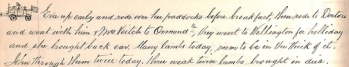 Eve up early and rode over the paddocks before breakfast, then rode to Doctors
and went with him & Mrs Veitch to Ormond they went to Wellington for holiday
and she brought back car. Many lambs today, seem to be in the thick of it.
through them twice today. One weak twin lambs, brought in dies.